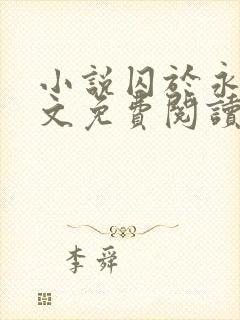 小說囚於永
文免費閱讀
李舜